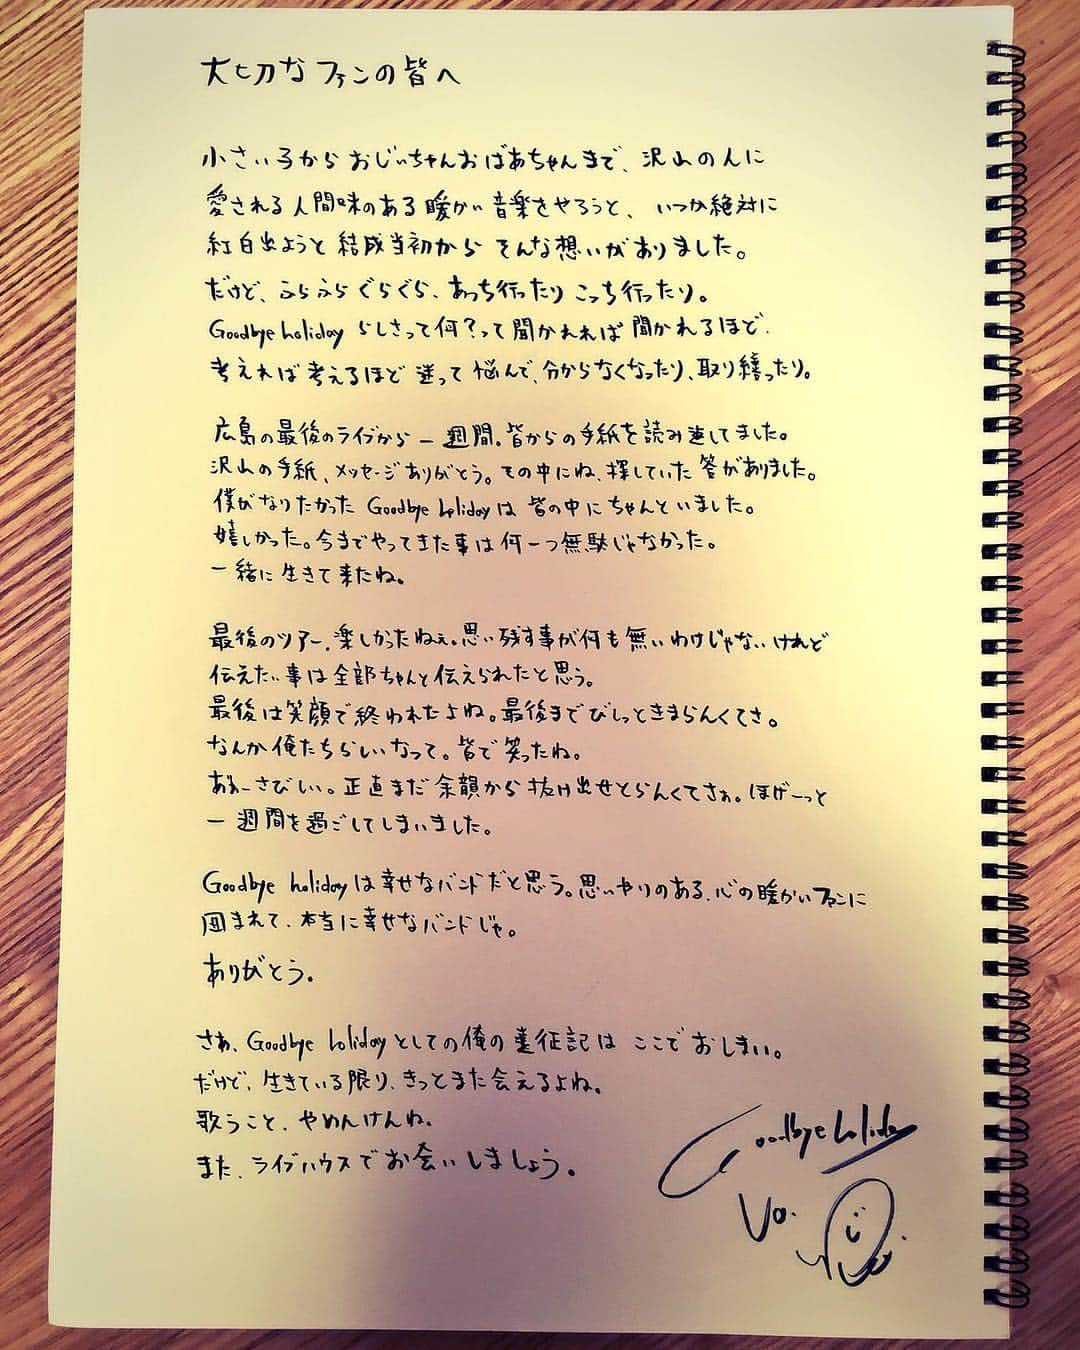 大切なファンの皆へ
小さい子からおじいちゃんおばあちゃんまで、沢山の人に
愛される人間味のある暖かい音楽をやろうと、いつか絶対に
紅白出ようと結成当初からそんな想いがありました。
だけど、ふらふらぐらぐら、あっち行ったりこっち行ったり。
Goodbye holidayらしさって何?って聞かれれば聞かれるほど、
考えれば考えるほど迷って悩んで、分からなくなったり、取り繕ったり。
広島の最後のライブから一週間。皆からの手紙を読み返してました。
沢山の手紙、メッセージありがとう。その中にね、探していた答がありました。
僕がなりたかったGoodbye holidayは皆の中にちゃんといました。
嬉しかった。今までやってきた事は何一つ無駄じゃなかった。
一緒に生きて来たね。
最後のツアー、楽しかったねぇ。思い残す事が何も無いわけじゃないけれど
伝えたい事は全部ちゃんと伝えられたと思う。
最後は笑顔で終われたよね。最後までびしっときまらんくてさ。
なんか俺たちらしいなって。皆で笑ったね。
あぁーさびしい。正直まだ余韻から抜け出せとらんくてさぁ。ほげーっと
一週間を過ごしてしまいました。
Goodbye holidayは幸せなバンドだと思う。思いやりのある、心の暖かいファンに
囲まれて、本当に幸せなバンドじゃ。
ありがとう。
さぁ、Goodbye holidayとしての俺の遠征記はここでおしまい。
だけど、生きている限り、きっとまた会えるよね。
歌うこと、やめんけんね。
また、ライブハウスでお会いしましょう。
Goodbye holiday
Vo.